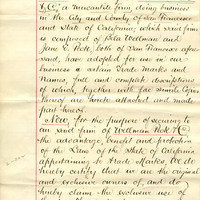 & Co, a mercantile firm, doing business
in the City and County of San Francisco
and State of California; which said firm
is composed of Wellman and
Jane E. Peck, both of San Francisco afore-
said, have adopted for use in our
business a certain Trade Marks and
names, full and complete descriptions
of which, together with fac simile Copies
thereof are hereto attached and made
part hereof
Now, for the purpose of securing to
us said firm of Wellman Peck & Co
the advantage, benefit and protection
of the Laws of the State of California
appertaining to Trade Marks, We do
hereby certify that we are the original
and exclusive owners of, and do
hereby claim the exclusive use of